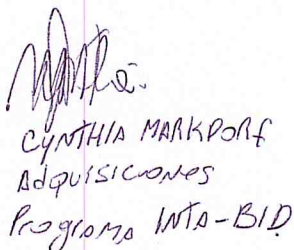 CYNTHIA MARKDORF
Adquisiciones
Programa INTA-BID